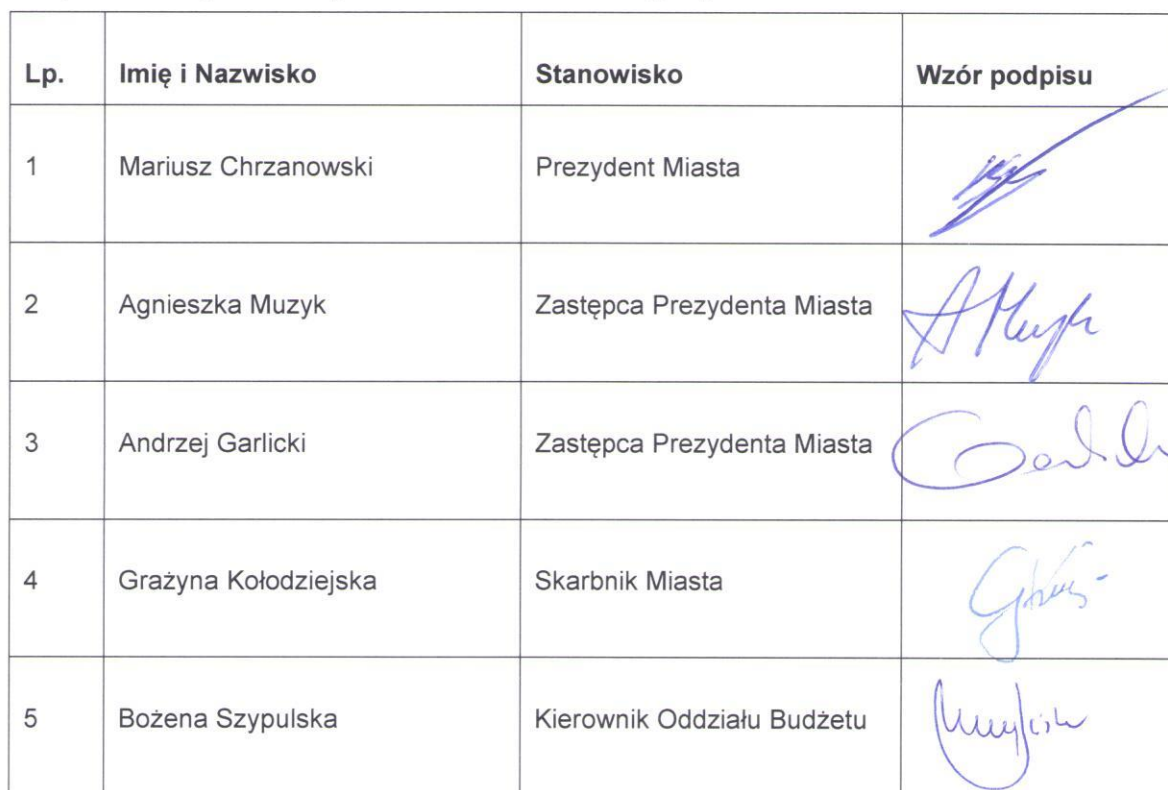 Lp. Imię i Nazwisko Stanowisko Wzór podpisu
1 Mariusz Chrzanowski Prezydent Miasta
2 Agnieszka Muzyk Zastępca Prezydenta Miasta
3 Andrzej Garlicki Zastępca Prezydenta Miasta
4 Grażyna Kołodziejska Skarbnik Miasta
5 Bożena Szypulska Kierownik Oddziału Budżetu